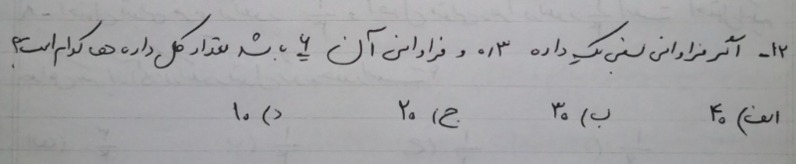 ۱۲- اگر فراوانی نسبی یک داده ۰٫۳ و فراوانی آن ۶ باشد مقدار کل داده ها کدام است؟
الف) ۴۰ ب) ۳۰ ج) ۲۰ د) ۱۰